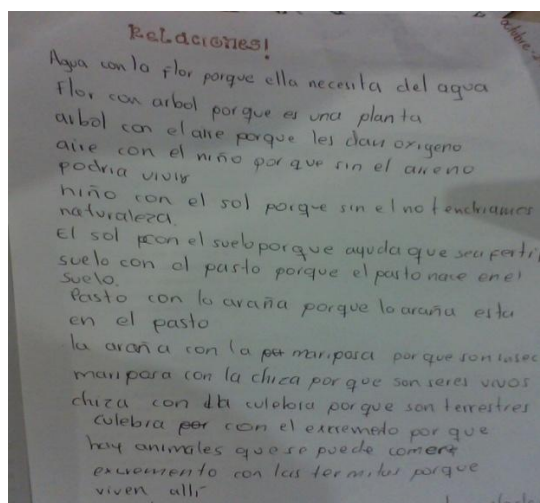 octubre
Relaciones!
Agua con la flor porque ella necesita del agua
Flor con arbol porque es una planta
arbol con el aire porque les dan oxigeno
aire con el niño porque sin el aire no
podria vivir
niño con el sol porque sin el no tendriamos
naturaleza.
El sol con el suelo porque ayuda que sea fertil
suelo con el pasto porque el pasto nace en el
suelo.
Pasto con la araña porque la araña esta
en el pasto
la araña con la mariposa porque son insec
mariposa con la chiza porque son seres vivos
chiza con la culebra porque son terrestres
culebra con el excremeto por que
hay animales que se puede comer
excremento con las termitas porque
viven alli